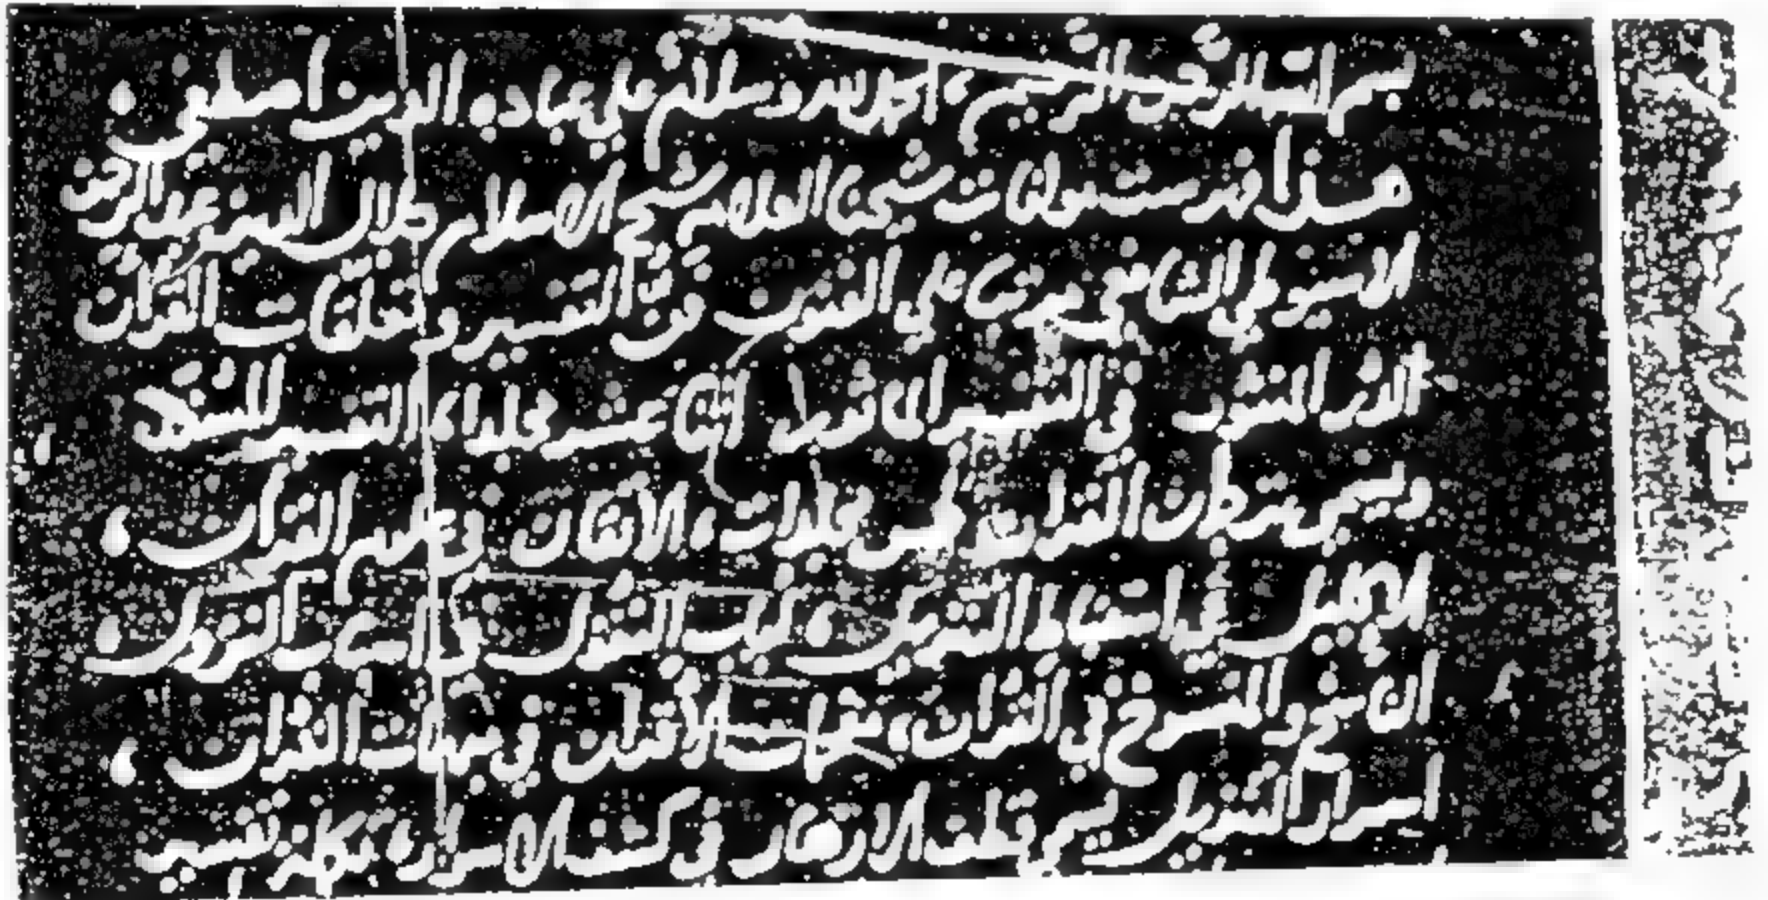 بسم الله الرحمن الرحيم الحمد لله وسلام على عباده الذين اصطفى
هذا فهرست مولفات شيخنا العلامة شيخ الاسلام جلال الدين عبد الرحمن
الاسيوطي الشافعي مرتبا على الفنون فن التفسير وتعلقات القران
الدر المنثور في التفسير الماثور اثنا عشر مجلدا التفسير المسند
ويسمى ترجمان القران خمس مجلدات الاتقان في علوم القران
الاكليل في استنباط التنزيل لباب النقول في اسباب النزول
الناسخ والمنسوخ في القران مفحمات الاقران في مبهمات القران
اسرار التنزيل يسمى قطف الازهار في كشف الاسرار تكملة تفسير